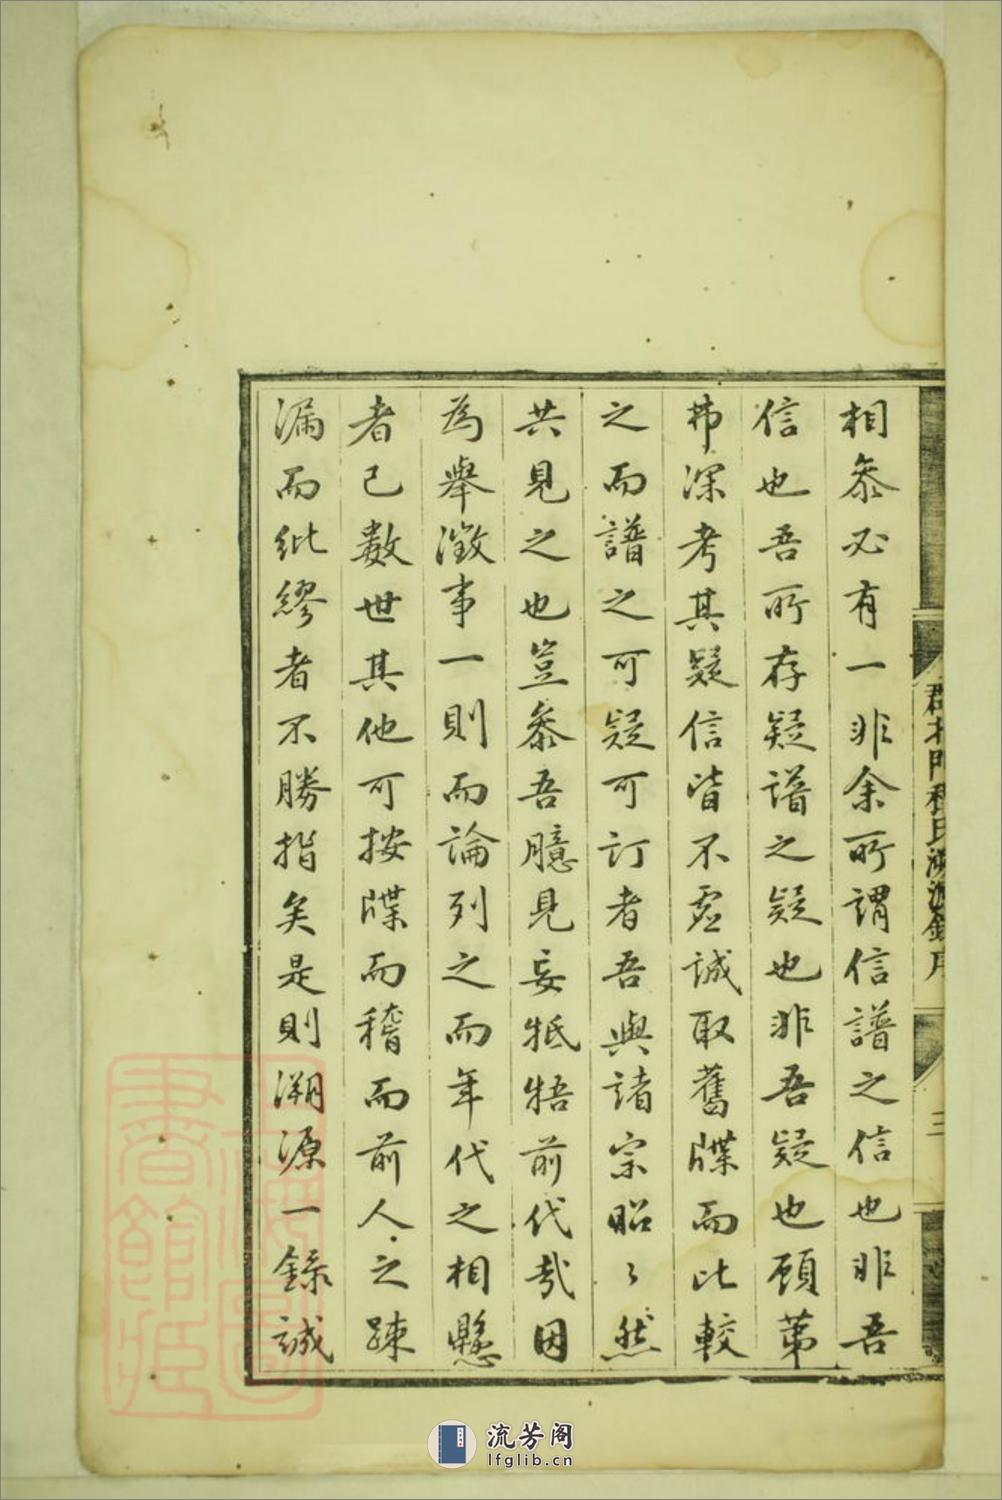 郡北門程氏溯源錄序
三
相叅必有一非余所謂信譜之信也非吾
信也吾所存疑譜之疑也非吾疑也顧第
弗深考其疑信皆不虛誠取舊牒而比較
之而譜之可疑可訂者吾與諸宗昭〻然
共見之也豈叅吾臆見妄牴牾前代哉因
為舉徵事一則而論列之而年代之相懸
者已數世其他可按牒而稽而前人之踈
漏而紕繆者不勝指矣是則溯源一錄誠
上海圖書館藏
流芳阁
lfglib.cn